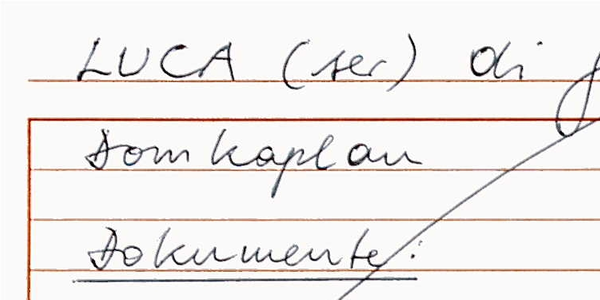 LUCA (ser) di
Domkaplan
Dokumente: